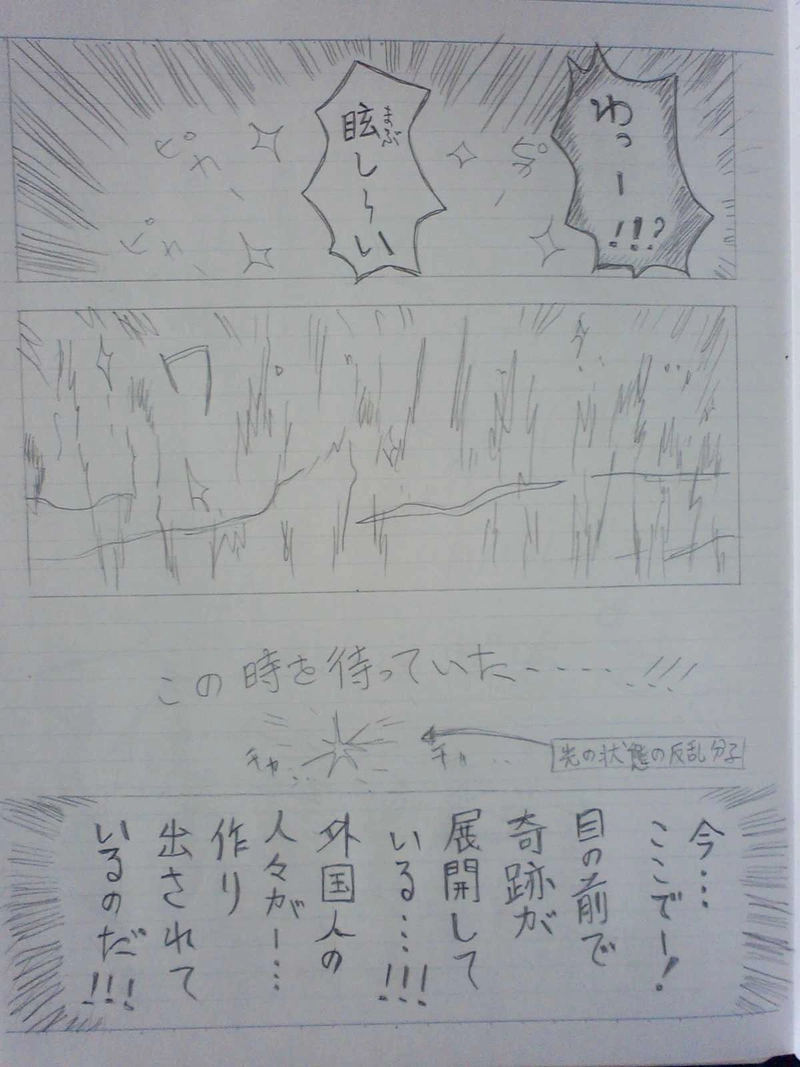 わっー!!?
眩し～い
まぶ
ピカ
ピカ
ピカ
ワ
この時を待っていた-----!!!
チカ…
チカ…
光の状態の反乱分子
今…
ここでー!
目の前で
奇跡が
展開して
いる…!!!
外国人の
人々がー…
作り
出されて
いるのだ!!!